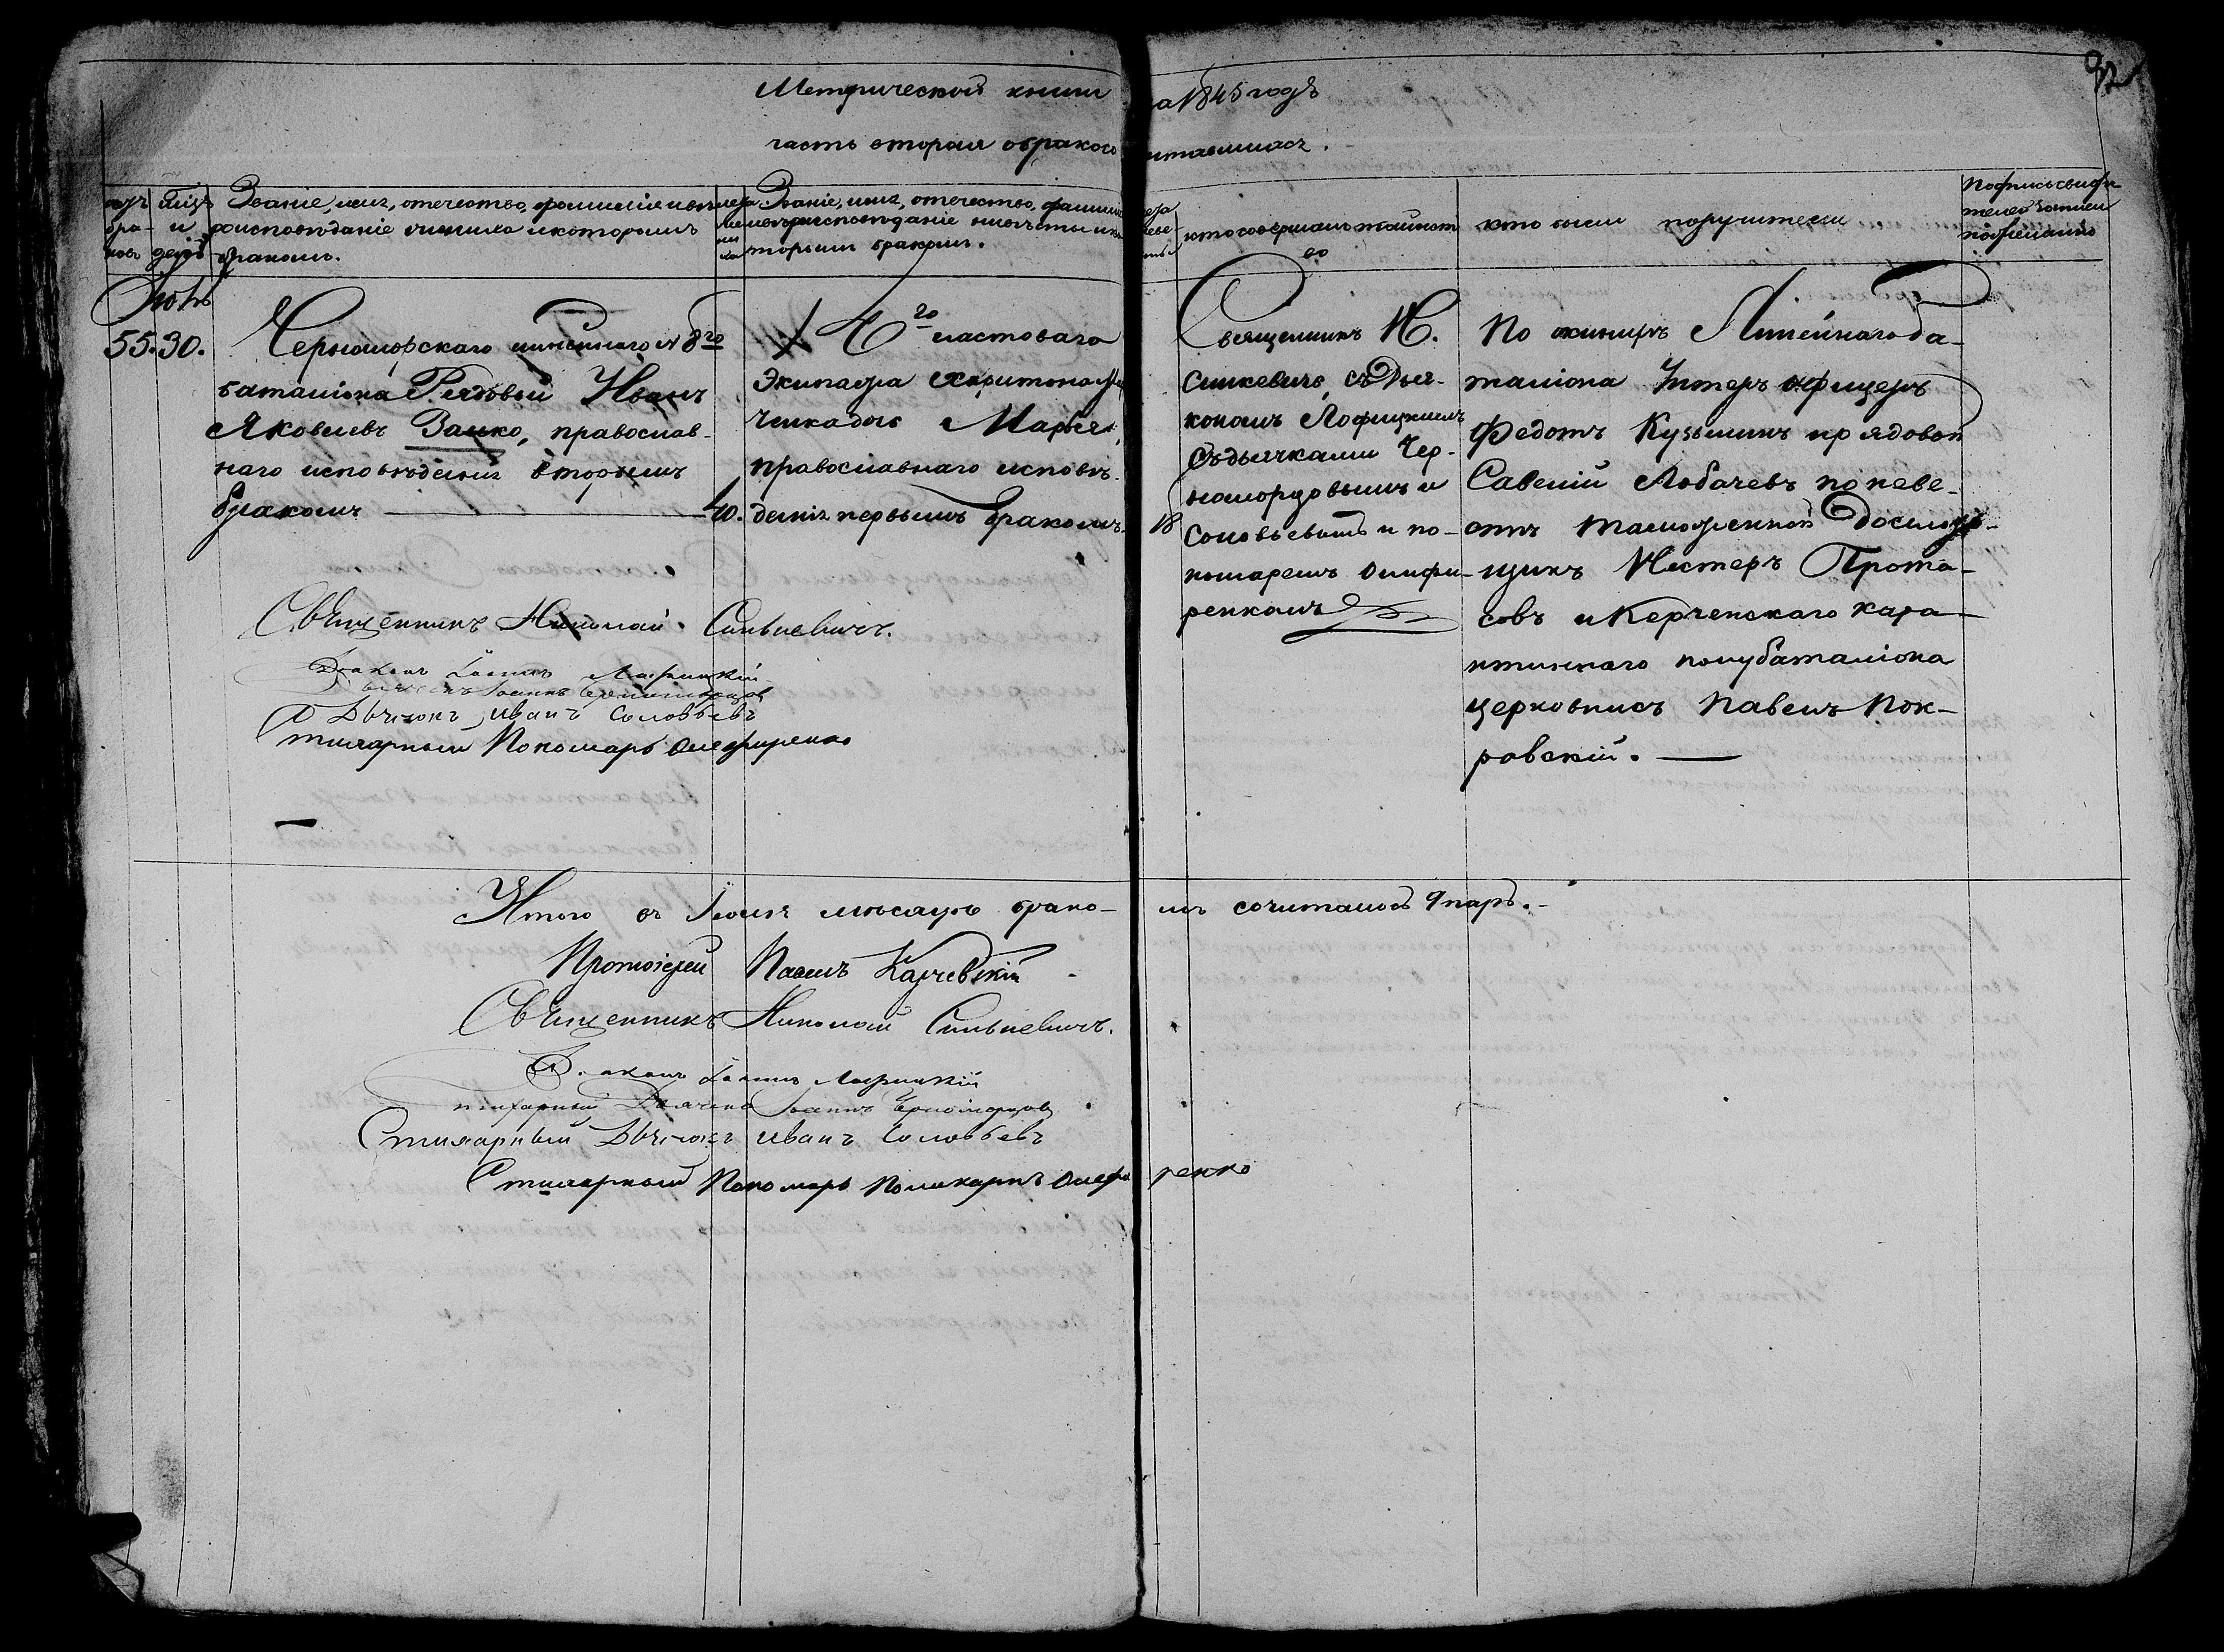 92
Метрической книги на 1845 годъ
часть вторая о бракосочитавшихся.
Счетъ браковъ
Мѣсяцъ и день
Званіе, имя, отечество, фамилія и вѣроисповѣданіе жениха и которымъ бракомъ.
лѣта жениха
Званіе, имя, отечество, фамилія и вѣроисповѣданіе невѣсты и которымъ бракомъ.
лѣта невѣсты
кто совершалъ таинство
кто были поручители
Подпись свидѣтелей записи по желанію
Іюнь
55. 30.
Черноморскаго линейнаго № 8го
баталіона Рядовый Иванъ
Яковлевъ Заико, православ-
наго исповѣданія вторымъ
бракомъ
40.
2го ластоваго
Экипажа Харитона
ченка дочь Марья,
православнаго исповѣ-
данія первымъ бракомъ
18
Священникъ Н.
Синкевичъ, съ Дья-
кономъ Лофицкимъ
съ дьячками Чер-
номорцовымъ и
Соловьевымъ и по-
номаремъ Олифи-
ренкомъ
По жинихѣ Линейнаго ба-
таліона Унтеръ офицеръ
Федотъ Кузьминъ и рядовой
Савелій Лобачевъ по неве-
стѣ таможенной Досмотр-
щикъ Нестеръ Прота-
совъ и Керченскаго кара-
нтиннаго полубаталіона
церковникъ Павелъ Пок-
ровскій.
Священникъ Николай Синькевичъ.
Діаконъ Іоаннъ Лофицкій
Дьячекъ Іоаннъ Черноморцовъ
Дьячокъ Иванъ Соловьевъ
Стихарный Пономарь Олефиренко
Итого въ Іюнѣ мѣсяцѣ бракомъ сочиталось 9 паръ.
Протоіерей Павелъ Карчевскій
Священникъ Николай Синькевичъ.
Діаконъ Іоаннъ Лофицкій
стихарный Дьячекъ Іоаннъ Черноморцовъ
Стихарный Дьячокъ Иванъ Соловьевъ
Стихарный Пономарь Поликарпъ Олефиренко